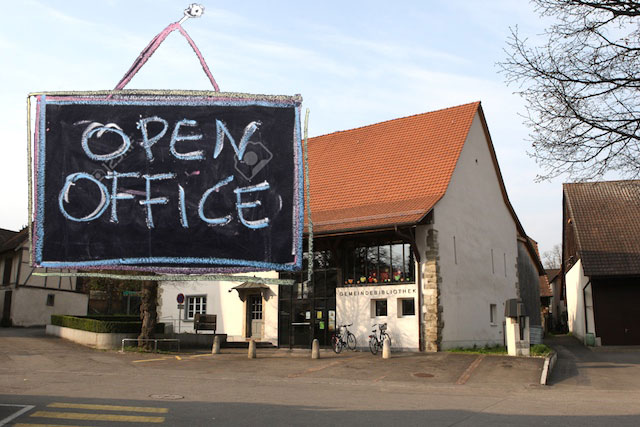 OPEN
OFFICE
GEMEINDEBIBLIOTHEK